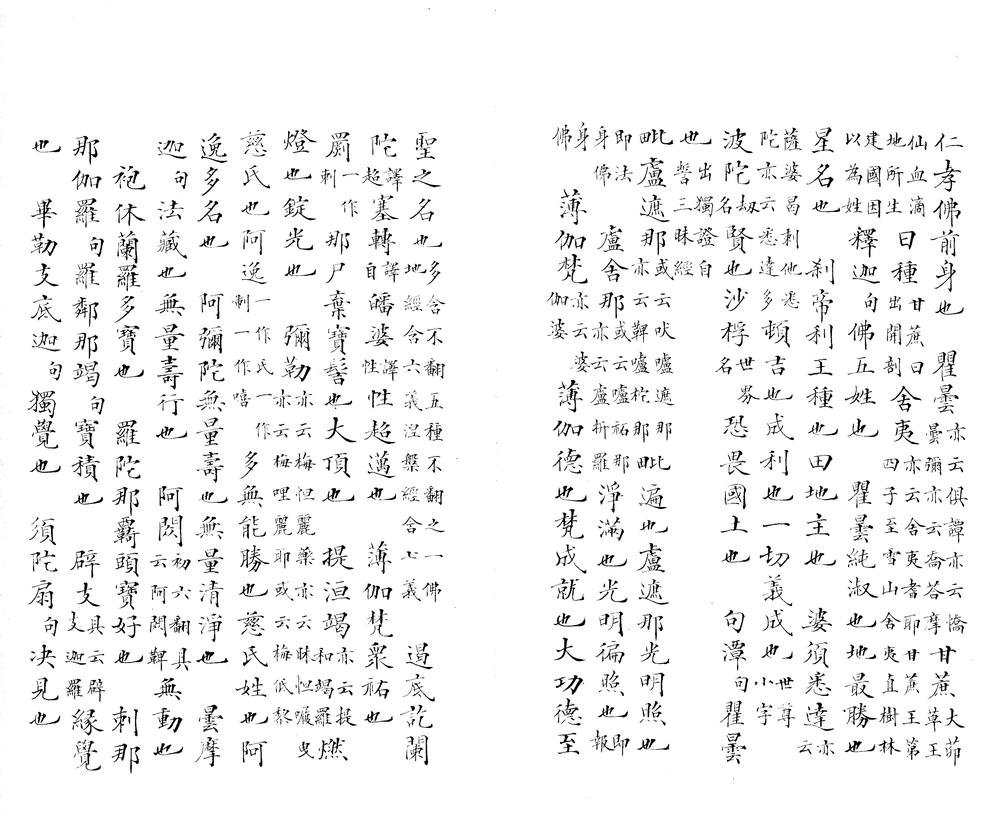 仁孝佛前身也　瞿曇亦云俱譚亦云憍曇彌亦云喬荅摩甘蔗大茆草王
仙血滴地所生日種甘蔗日出開剖舍夷亦云舍夷耆耶甘蔗王第四子至雪山舍夷直樹林
建國因以為姓釋迦句佛五姓也　瞿曇純淑也地最勝也
星名也　剎帝利王種也田地主也　婆須悉達亦云
薩婆曷刺他悉陀亦云悉達多頓吉也成利也一切義成也世尊小字
波陀劫名賢也沙桴世界名恐畏國土也　句潭句瞿曇
也出獨證自誓三昧經
毗盧遮那或云吠嚧遮那亦云鞞嚧柁那毗遍也盧遮那光明照也
即法身佛盧舍那或云嚧祐那亦云盧折羅淨滿也光明徧照也即報
身佛　薄伽梵亦云婆伽婆薄伽德也梵成就也大功德至
聖之名也多含不翻五種不翻之一佛地經含六義涅槃經含七義　遏底訖蘭
陀譯超塞轉譯自皤婆譯性性超邁也　薄伽梵衆祐也
罽一作刺那尸棄寶髻也大頂也　提洹竭亦云提和竭羅燃
燈也錠光也　彌勒亦云梅怛麗藥亦云昧怛曳亦云梅哩麗耶或云梅低黎
慈氏也阿逸一作氏一作制一作嘻多無能勝也慈氏姓也阿
逸多名也　阿彌陀無量壽也無量清淨也　曇摩
迦句法藏也無量壽行也　阿閦初六翻具云阿閦鞞無動也
袍休蘭羅多寶也　羅陀那罽頭寶好也　刺那
那伽羅句羅鄰那竭句寶積也　辟支具云辟支迦羅緣覺
也　畢勒支底迦句獨覺也　須陀扇句决見也